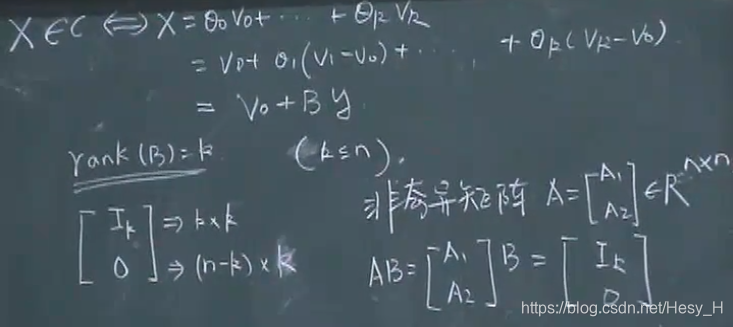 X∈C ⇔ X = θ₀V₀+ ⋯ + θₖVₖ
= V₀+ θ₁(V₁−V₀)+ ⋯ + θₖ(Vₖ−V₀)
= V₀+By
rank(B)=k (k≤n).
非奇异矩阵 A=[A₁ A₂]∈R^{n×n}
[Iₖ 0] ⇒k×k ⇒(n-k)×k
AB=[A₁ A₂]B=[Iₖ 0]
https://blog.csdn.net/Hesy_H